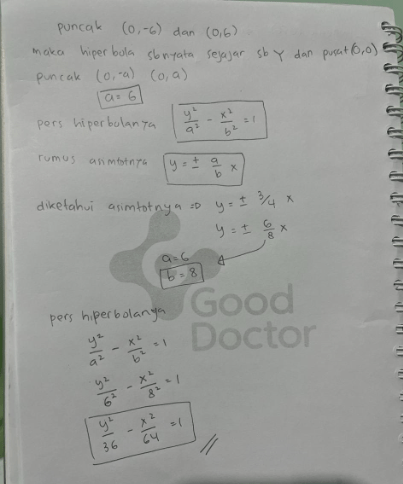 puncak (0,-6) dan (0,6)
maka hiperbola sb nyata sejajar sb Y dan pusat (0,0)
puncak (0,-a) (0,a)
a = 6
pers hiperbolanya y²/a² - x²/b² = 1
rumus asimtotnya y = ± a/b x
diketahui asimtotnya ⇒ y = ± 3/4 x
y = ± 6/8 x
a = 6
b = 8
Good
Doctor
pers hiperbolanya
y²/a² - x²/b² = 1
y²/6² - x²/8² = 1
y²/36 - x²/64 = 1